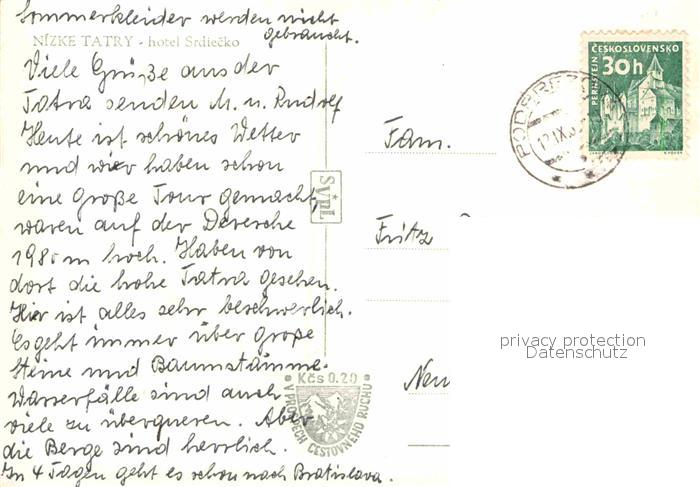 Sommerkleider werden nicht
gebraucht.
NÍZKE TATRY - hotel Srdiečko
Viele Grüße aus der
Tatra senden M. u. Rudolf
Heute ist schönes Wetter
und wir haben schon
eine große Tour gemacht,
waren auf der Deresche
1980 m hoch. Haben von
dort die hohe Tatra gesehen.
Hier ist alles sehr beschwerlich.
Es geht immer über große
Steine und Baumstämme.
Wasserfälle sind auch
viele zu überqueren. Aber
die Berge sind herrlich.
In 4 Tagen geht es schon nach Bratislava.
SVPL
Kčs 0.20
V PROSPĚCH CESTOVNÉHO RUCHU
ČESKOSLOVENSKO
PERNŠTEJN
30h
12.IX
Fam.
Fritz
Neu
privacy protection
Datenschutz